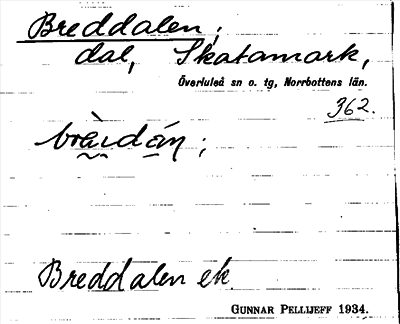 Breddalen;
dal, Skatamark,
Överluleå sn o. tg, Norrbottens län.
362.
Breddalen ek
GUNNAR PELLIJEFF 1934.